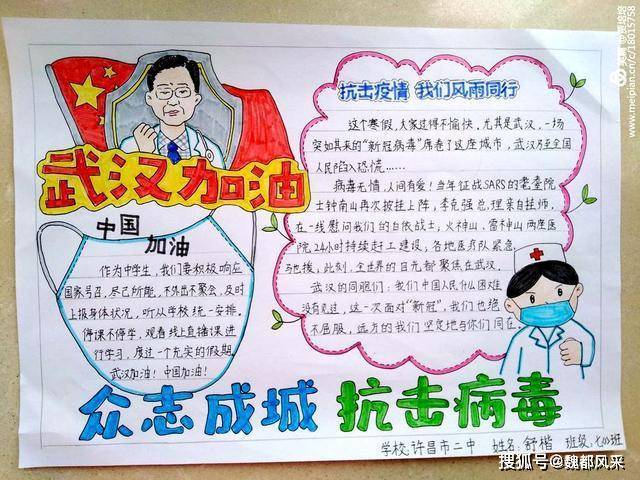 武汉加油
中国
加油
作为中学生，我们要积极响应
国家号召，尽己所能，不外出不聚会，及时
上报身体状况，听从学校统一安排。
停课不停学，观看线上直播课进
行学习，度过一个充实的假期。
武汉加油！中国加油！
抗击疫情 我们风雨同行
这个寒假，大家过得不愉快，尤其是武汉，一场
突如其来的“新冠病毒”席卷了这座城市，武汉乃至全国
人民陷入恐慌……
病毒无情，人间有爱！当年征战SARS的老查院
士钟南山再次披挂上阵，李克强总理亲自挂帅，
在一线慰问我们的白依战士，火神山、雷神山两座医
院24小时持续赶工建设，各地医疗队紧急
驰援，此刻，全世界的目光都聚焦在武汉。
武汉的同胞们：我们中国人民什么困难
没有见过，这一次面对“新冠”，我们也绝
不屈服，远方的我们坚定地与你们同在。
众志成城 抗击病毒
学校：许昌市二中 姓名：舒楷 班级：七（1）班
搜狐号@魏都风采
www.meipian.cn/c/18015758